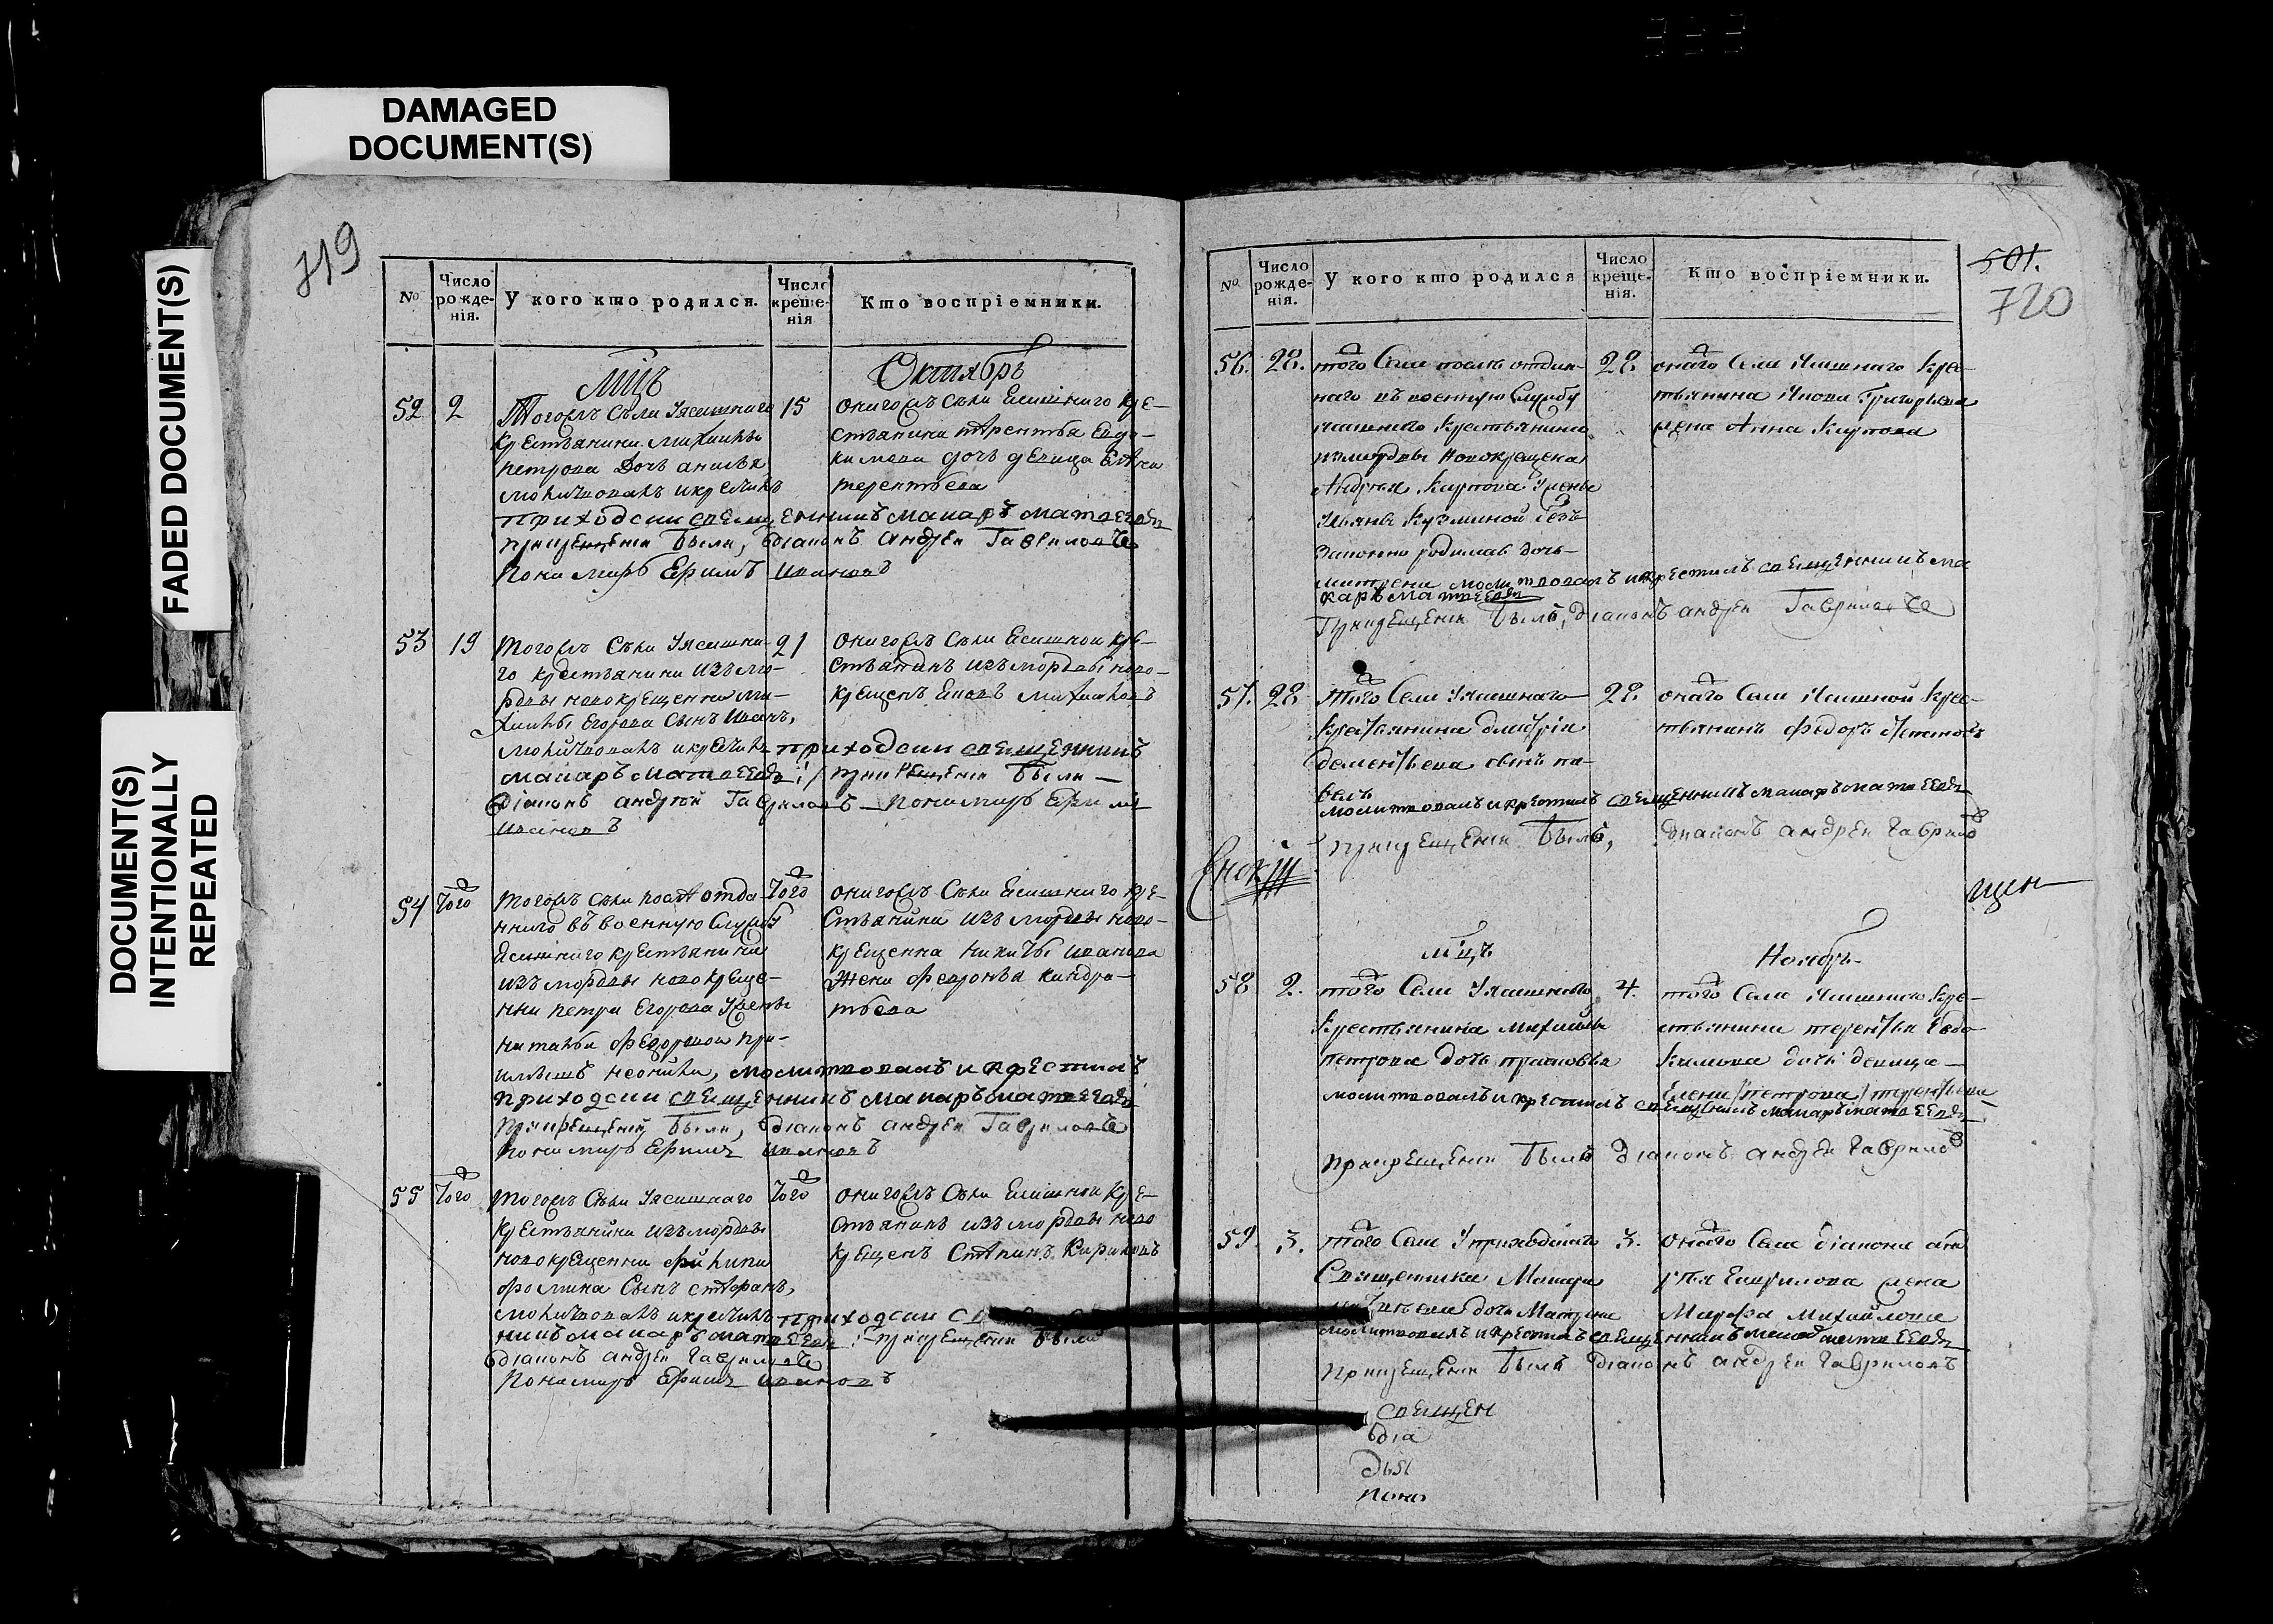 DAMAGED
DOCUMENT(S)
FADED DOCUMENT(S)
DOCUMENT(S)
INTENTIONALLY
REPEATED
719
№
Число рожде-нія.
У кого кто родился.
Число креще-нія
Кто воспріемники.
Мцъ Октябрь
52 2
Тогожъ Села Уясашнаго
крестьянина Михаилы
петрова Дочь анисья
молитвовалъ и крестилъ
приходски священникъ макаръ матвеевъ
прикрещении были, діаконъ андреи Гавриловъ
пономарь Ефимъ ивановъ
15
оногожъ Села Ясашного кре-
стьянина терентья Евдо-
кимова дочь девица Елена
терентьева
53 19
тогожъ Села Уясашна-
го крестьянина изъ мо-
рдвы новокрещенна ми-
хаилы Егорова Сынъ Иванъ,
молитвовалъ и крестилъ приходски священникъ
макаръ матвеевъ / прикрещении были —
діаконъ андреи Гавриловъ — пономарь Ефимъ
ивановъ
21
оногожъ Села Ясашнои кре-
стьянинъ изъ мордвы ново-
крещенъ Яковъ михаиловъ
54 Того
тогожъ Села после отда-
ннаго въ военную Службу
Ясашнаго крестьянина
изъ мордвы новокреще-
нна петра Егорова Ужены
натальи федоровои при-
молитвовалъ и крестилъ
приходски священникъ макаръ матвеевъ
прикрещении были, діаконъ андреи Гавриловъ
пономарь Ефимъ ивановъ
Того
оногожъ Села Ясашнаго кре-
стьянина изъ мордвы ново-
крещенна никиты иванова
Жена февронья кондра-
тьева
55 Того
тогожъ Села Уясашнаго
крестьянина изъ мордвы
новокрещенна филипа
фомина Сынъ стефанъ,
молитвовалъ и крестилъ приходски
никъ макаръ матвеевъ прикрещении были
діаконъ андреи гавриловъ
пономарь Ефимъ ивановъ
Того
оногожъ Села Ясашнои кре-
стьянинъ изъ мордвы ново
крещенъ Степанъ
№
Число рожде-нія.
У кого кто родился
Число креще-нія.
Кто воспріемники.
501.
720
56. 28.
того Села после отдан-
наго въ военную Службу
ясашнаго крестьянина
измордвы новокрещена
Андрея Карпова Ужены
Ульяны Кузминой безъ
законно родилась дочь
матрена молитвовалъ и крестилъ священникъ ма
каръ матвеевъ
прикрещении былъ, діаконъ андреи Гавриловъ
28
онаго Села Ясашнаго Крес-
тьянина Якова Григорьева
жена Анна Карпова
57. 28
того Села Уясашнаго
Крестьянина дмитрія
дементьева сынъ па-
велъ
молитвовалъ и крестилъ священникъ макаръ матвеевъ
прикрещении былъ, діаконъ андреи гаврилов
28.
онаго Села Ясашной Крес-
тьянинъ Федоръ
щен
мцъ Ноябрь
58 2.
того Села Уясашнаго
Крестьянина михаилы
петрова дочь прасковья
молитвовалъ и крестилъ священникъ макаръ матвеевъ
прикрещении былъ діаконъ андреи гаврилов
4.
того Села Ясашнаго Кре-
стьянина терентья Евдо-
кимова дочь девица
Елена /петрова/ терентьева
59. 3.
того Села Уприходскаго
Священника Макара
матвеева дочь Матрена
молитвовалъ и крестилъ священникъ макаръ матвеевъ
прикрещении былъ діаконъ андреи гавриловъ
3.
онаго Села діакона анд
рея Гаврилова жена
Марфа михайлова
священ
діа
дья
поно